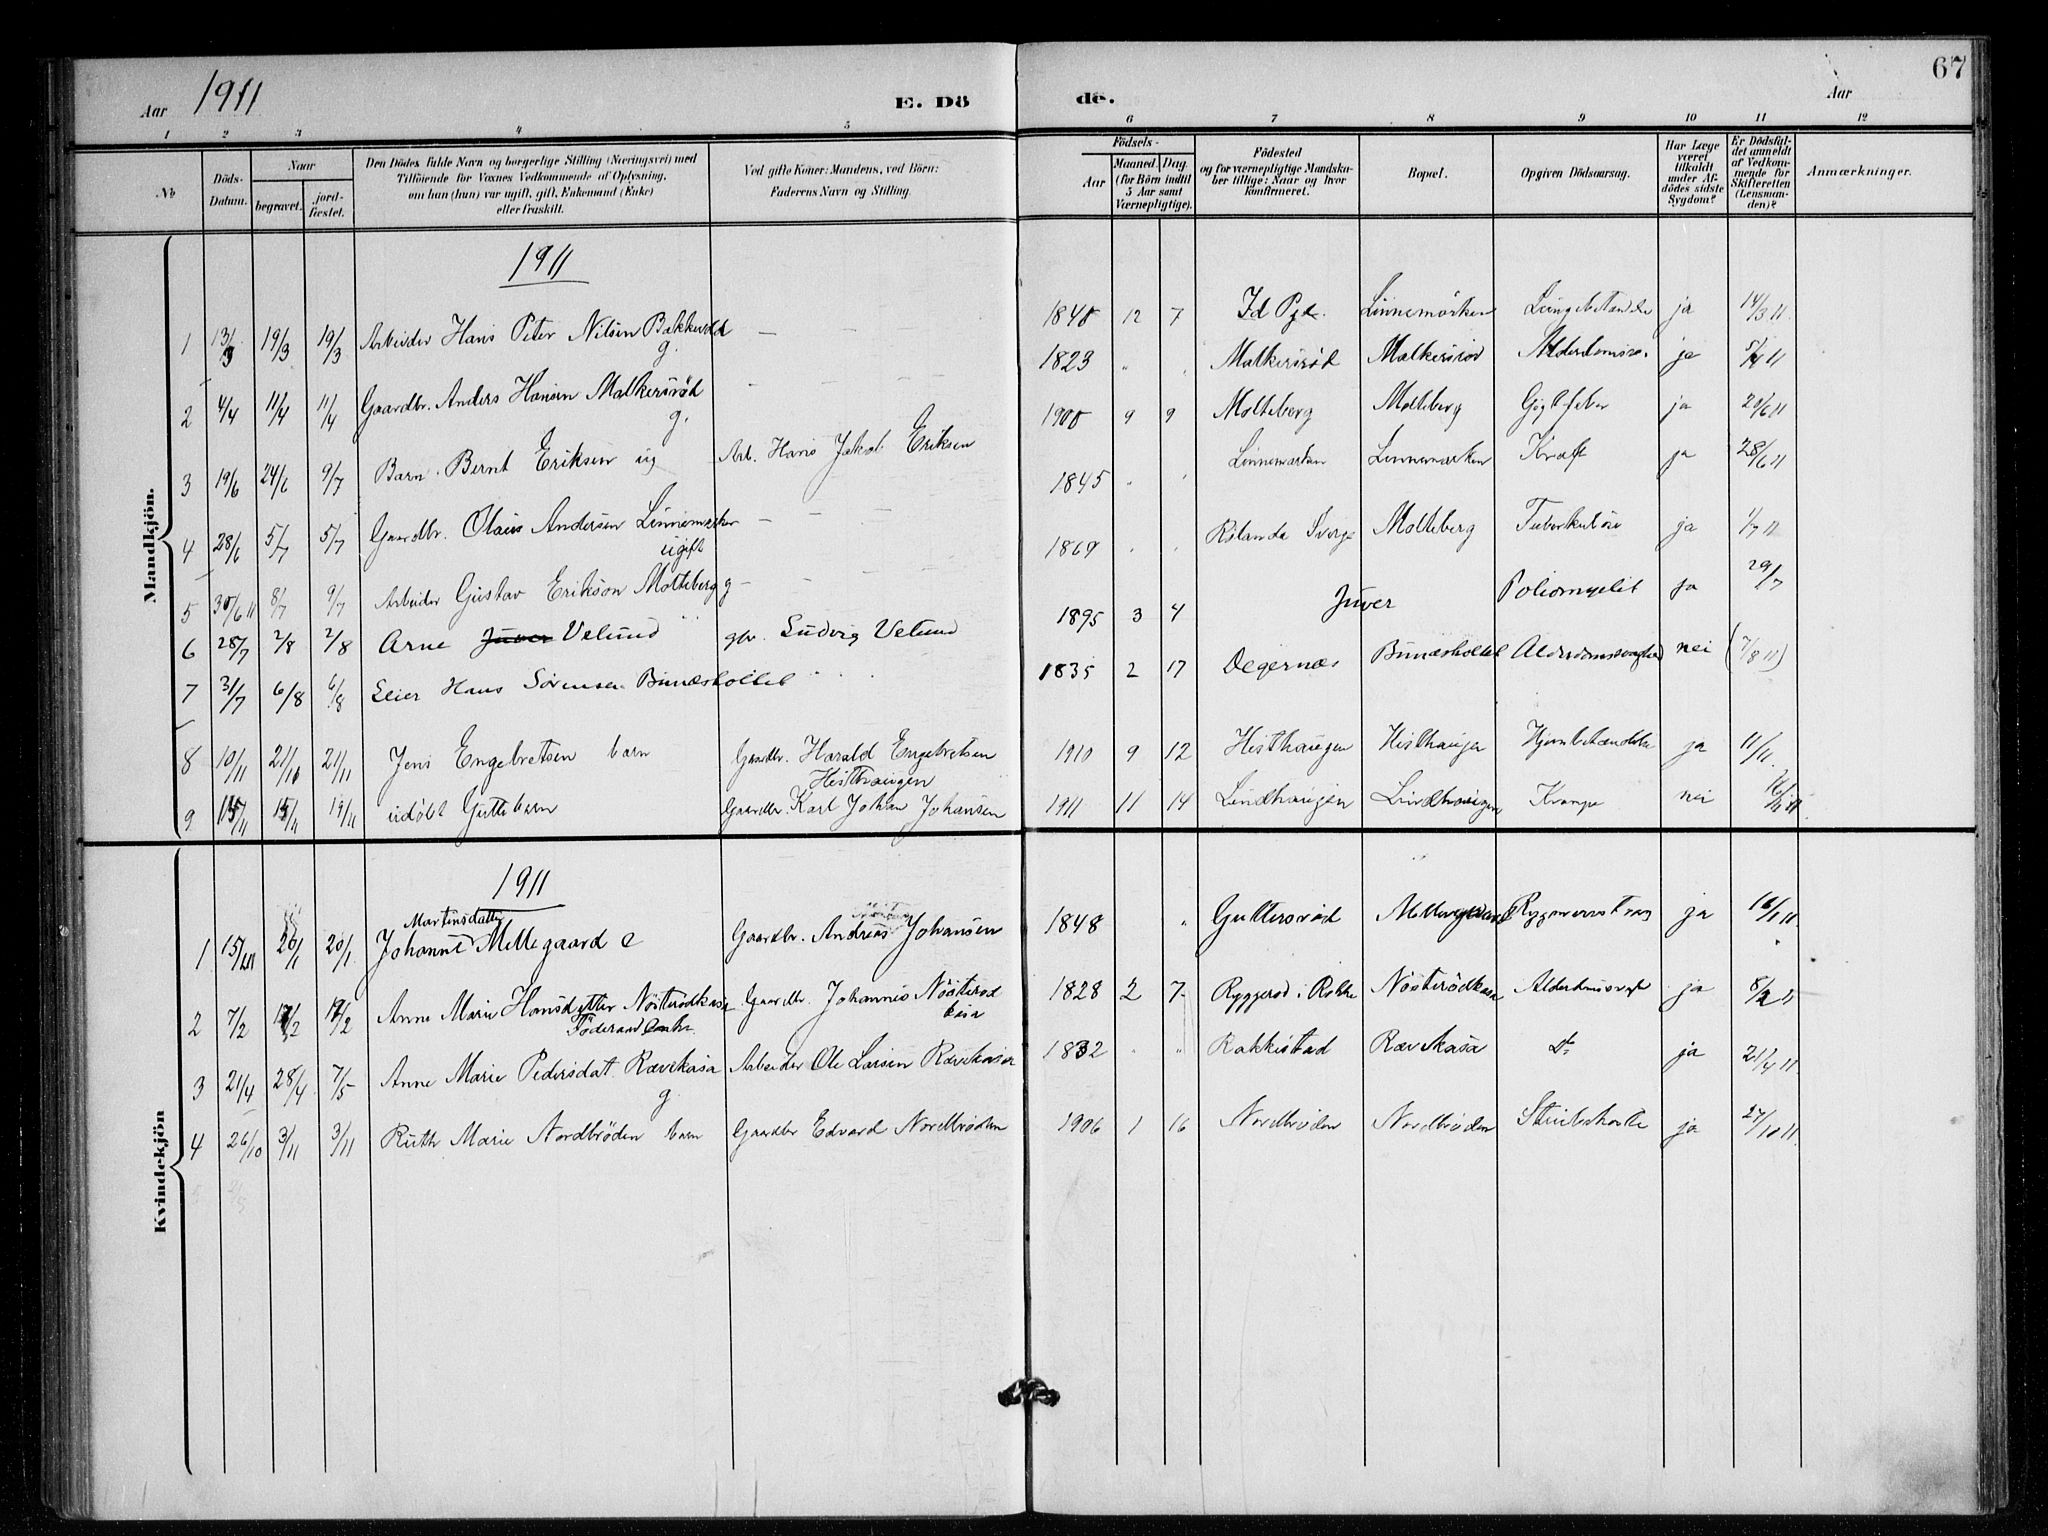 Aar 1911 E. Dö de. Aar 67
1 2 3 4 5 6 7 8 9 10 11 12
No
Döds-Datum.
Naar
begravet.
jordfæstet.
Den Dödes fulde Navn og borgerlige Stilling (Næringsvei) med
Tilföiende for Voxnes Vedkommende af Oplysning,
om han (hun) var ugift, gift, Enkemand (Enke)
eller fraskilt.
Ved gifte Koner: Mandens, ved Börn:
Faderens Navn og Stilling.
Födsels-
Aar
Maaned. Dag.
(for Börn indtil
5 Aar samt
Værnepligtige).
Födested
og for værnepligtige Mandskaber tillige: Naar og hvor
konfirmeret.
Bopæl.
Opgiven Dödsaarsag.
Har Læge været tilkaldt under Afdödes sidste Sygdom?
Er Dödsfaldet anmeldt af Vedkommende for Skifteretten (Lensmanden)?
Anmærkninger.
Mandkjön.
1911
1 13/3 19/3 19/3 Arbeider Hans Peter Nilsen Bakkevold g. — 1840 12 7 Id Pgd. Linnemörken Lungebetændelse ja 14/3 11.
2 4/4 11/4 11/4 Gaardbr. Anders Hansen Malkersröd g. 1823 " " Malkersröd Malkersröd ja 5/4 11
3 19/6 24/6 9/7 Barn Bernt Eriksen ug Arb. Hans Jakob Eriksen 1900 9 9 Molteberg Molteberg Gigtfeber ja 20/6 11
4 28/6 5/7 5/7 Gaardbr. Olaus Andersen Linnemarken ugift — 1845 " " Linnemarken Linnemarken Kræft ja 28/6 11
5 30/6 11 8/7 9/7 Arbeider Gustav Erikson Molteberg g — 1869 " " Rölanda Sverge Molteberg Tuberkulose ja 1/7 11
6 28/7 2/8 2/8 Arne Juver Velund gbr. Ludvig Velund 1895 3 4 Juver Poliomyelit ja 29/7
7 31/7 6/8 6/8 Leier Hans Sörensen Bunæsholtet 1835 2 17 Degernæs Bunæsholtet Alderdomssvaghed nei (7/8 11)
8 10/11 21/10 21/11 Jens Engebretsen barn Gaardbr. Harald Engebretsen
Histhaugen 1910 9 12 Histhaugen Histhaugen Hjernebetændelse ja 11/11.
9 15/11 15/11 19/11 udöbt Guttebarn Gaardbr Karl Johan Johansen 1911 11 14 Lundhaugen Lundhaugen Krampe nei
Kvindekjön
1911
Martinsdatter
1 15/1 11 20/1 20/1 Johanne Mellegaard e Gaardbr. Andreas Johansen 1848 " Guttersröd Mellegaard ja 16/1 11.
2 7/2 17/2 17/2 Anne Marie Hansdatter Nösterödkasa Gaardbr. Johannes Nösterod
kasa
Föderaadsenke 1828 2 7 Ryggerod i Rokke Nösterödkasa ja 8/2 11
3 21/4 28/4 7/5 Anne Marie Pedersdat. Rævekasa g Arbeider Ole Larsen Rævekasa 1832 " " Rakkestad Rævekasa Do ja 21/4 11.
4 26/10 3/11 3/11 Ruth Marie Nordbröden barn Gaardbr Edvard Nordbröden 1906 1 16 Nordbröden Nordbröden Strubehoste ja 27/10 11.